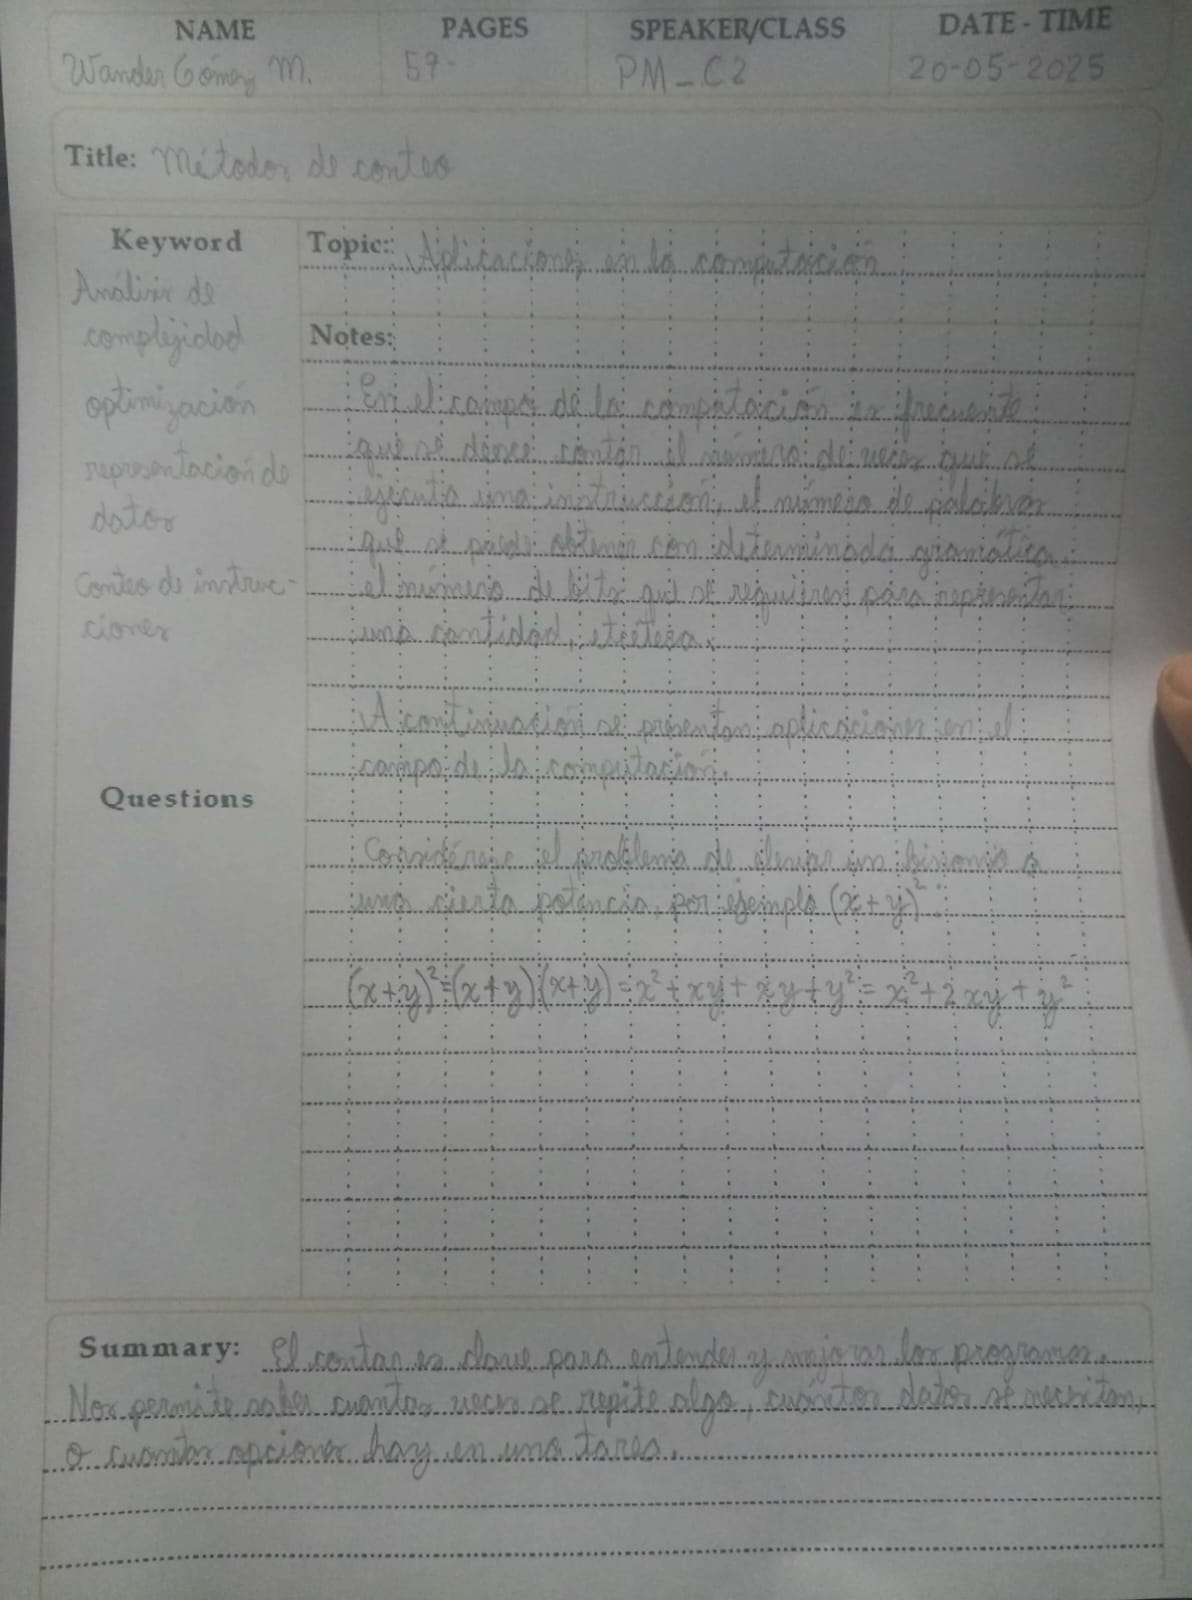 NAME PAGES SPEAKER/CLASS DATE - TIME
Wander Gómez M. 57- PM_C2 20-05-2025
Title: Métodos de conteo
Keyword
Análisis de
complejidad
optimización
representación de
datos
Conteo de instruc-
ciones
Questions
Topic: Aplicaciones en la computación
Notes:
En el campo de la computación es frecuente
que se desee contar el número de veces que se
ejecuta una instrucción, el número de palabras
que se puede obtener con determinada gramática,
el número de bits que se requieren para representar
una cantidad, etcétera.
A continuación se presentan aplicaciones en el
campo de la computación.
Considérese el problema de elevar un binomio a
una cierta potencia, por ejemplo (x+y)²:
(x+y)²=(x+y)(x+y)=x²+xy+xy+y²=x²+2xy+y²
Summary: El contar es clave para entender y mejorar los programas.
Nos permite saber cuantas veces se repite algo, cuántos datos se necesitan,
o cuantas opciones hay en una tarea.